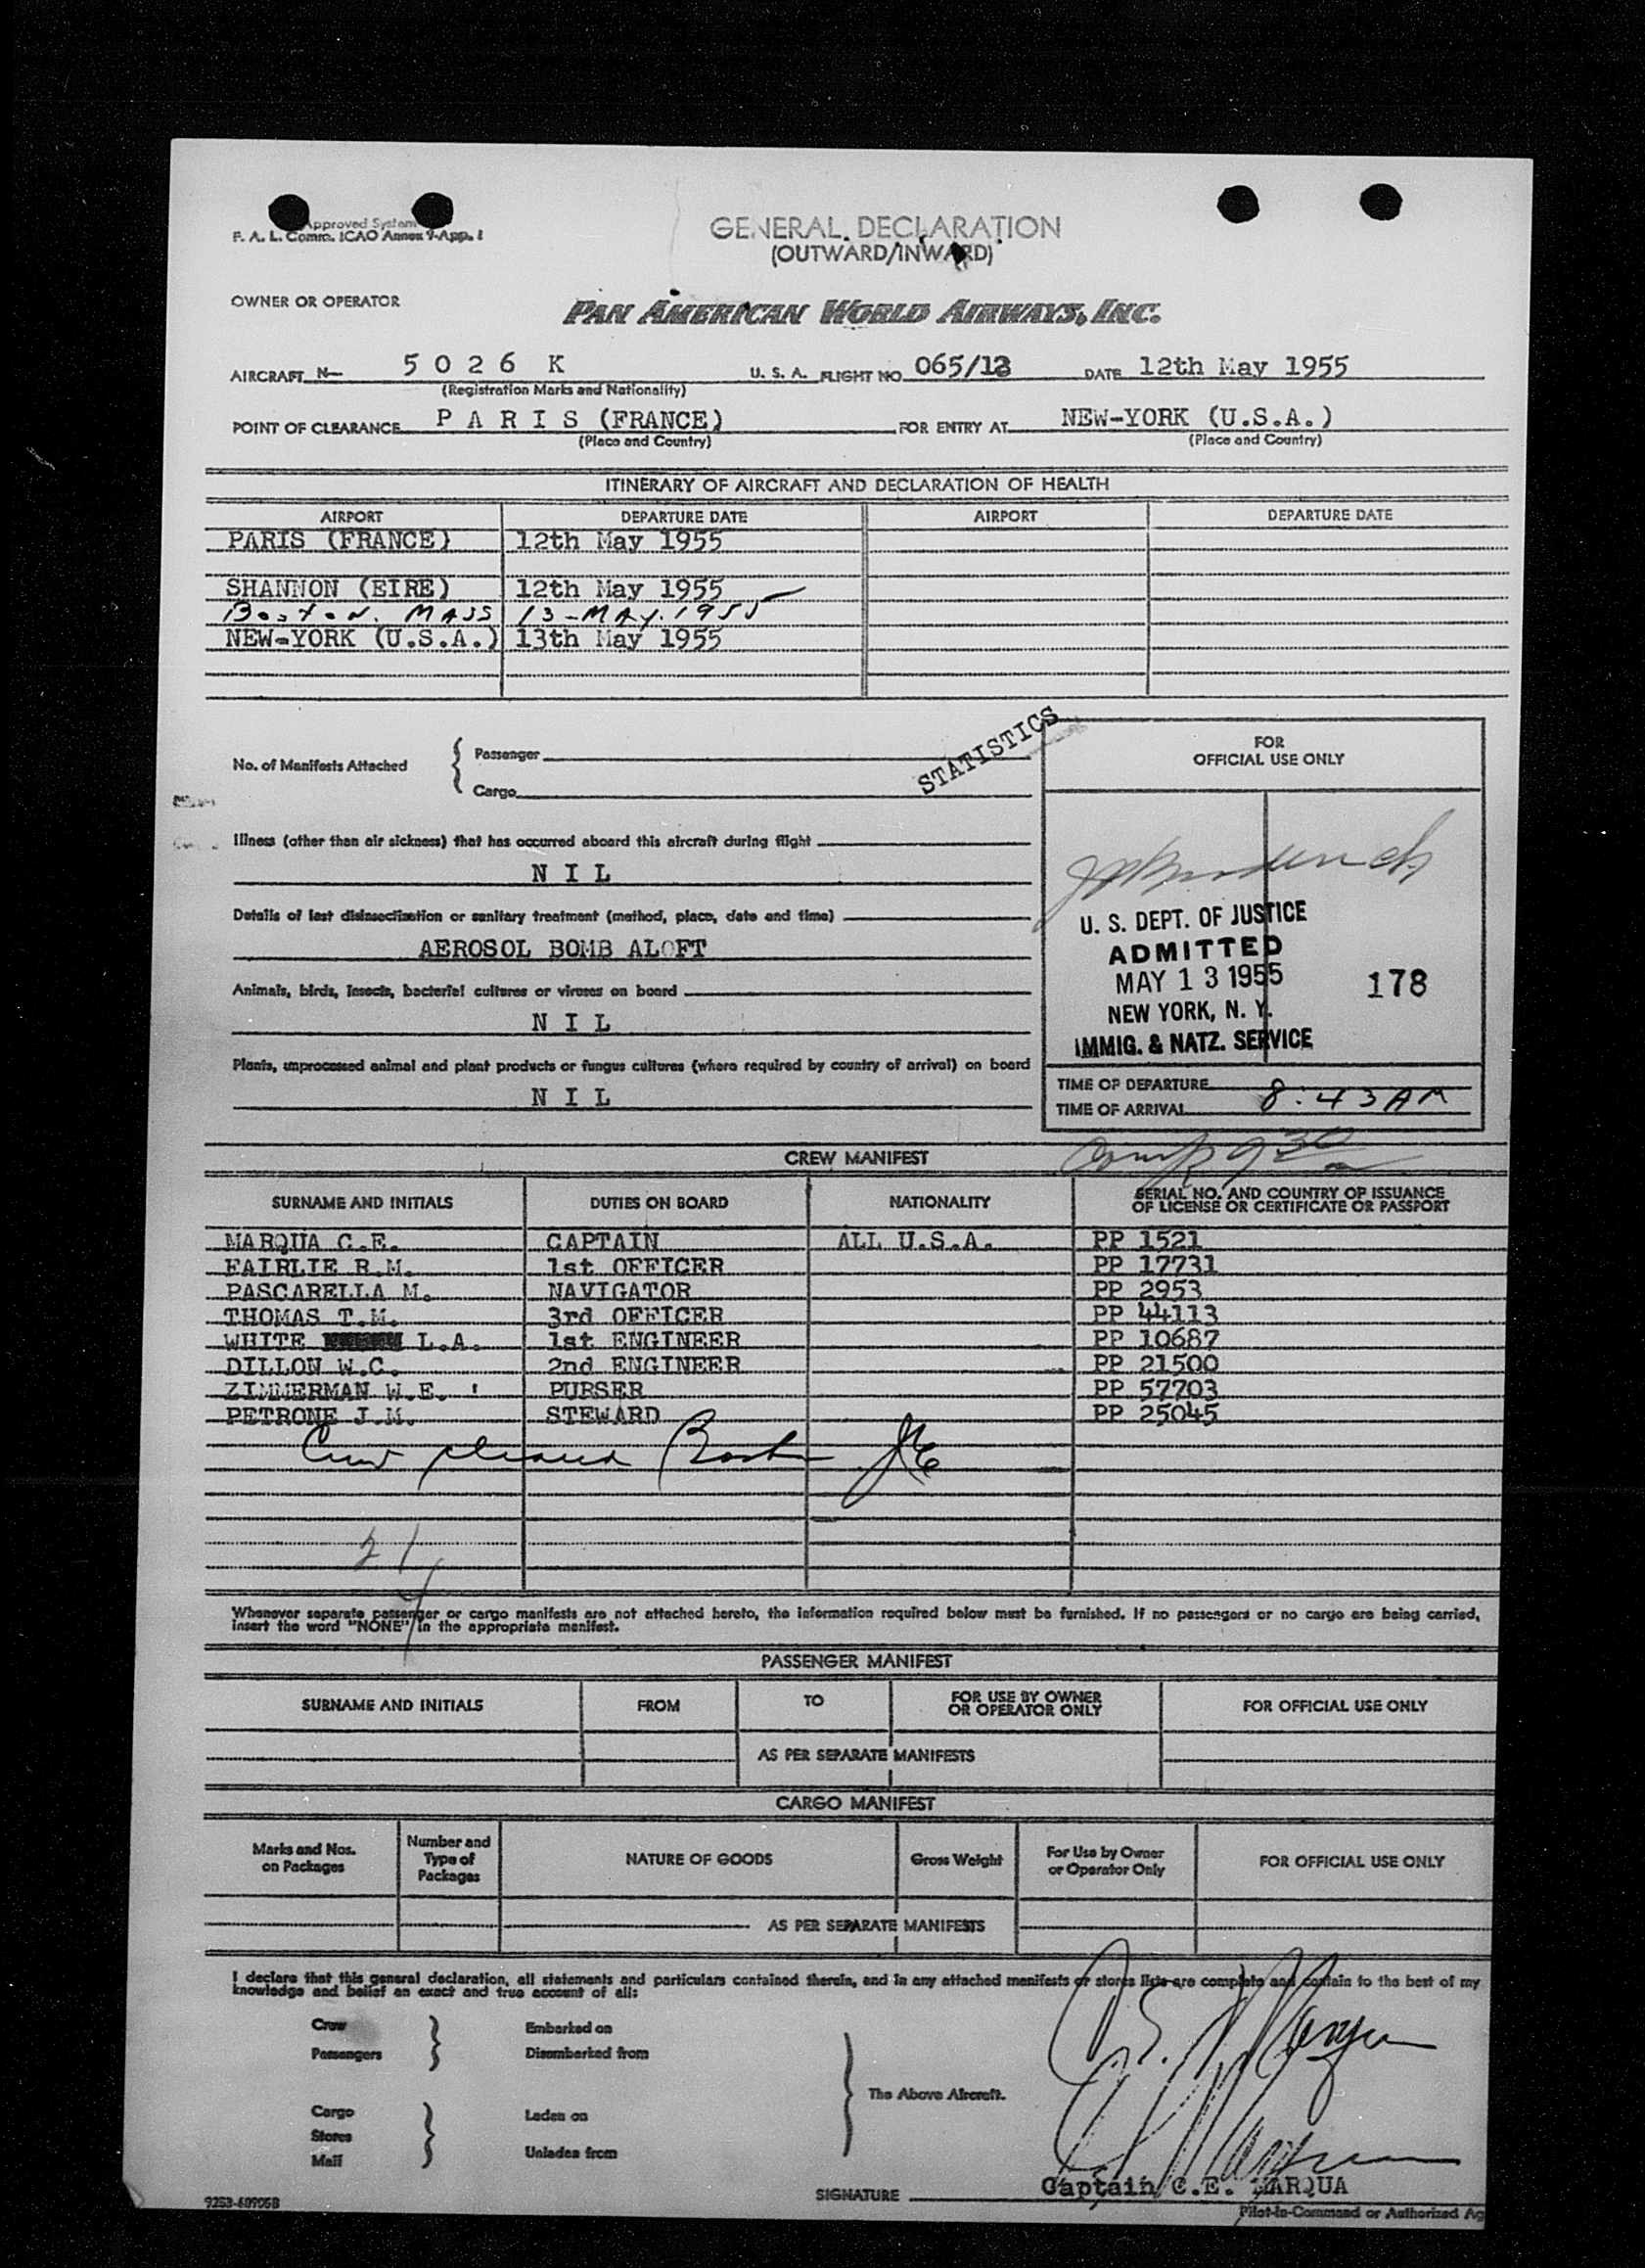 Approved System
F. A. L. Comm. ICAO Annex 9-App. 1
GENERAL DECLARATION
(OUTWARD/INWARD)
OWNER OR OPERATOR
PAN AMERICAN WORLD AIRWAYS, INC.
AIRCRAFT N- 5 0 2 6 K U. S. A. FLIGHT NO. 065/12 DATE 12th May 1955
(Registration Marks and Nationality)
POINT OF CLEARANCE P A R I S (FRANCE) FOR ENTRY AT NEW-YORK (U.S.A.)
(Place and Country) (Place and Country)
ITINERARY OF AIRCRAFT AND DECLARATION OF HEALTH
AIRPORT DEPARTURE DATE AIRPORT DEPARTURE DATE
PARIS (FRANCE) 12th May 1955
SHANNON (EIRE) 12th May 1955
Boston. MASS 13-MAY.1955
NEW-YORK (U.S.A.) 13th May 1955
STATISTICS
No. of Manifests Attached { Passenger
Cargo
FOR
OFFICIAL USE ONLY
Illness (other than air sickness) that has occurred aboard this aircraft during flight
N I L
Details of last disinsectization or sanitary treatment (method, place, date and time)
AEROSOL BOMB ALOFT
Animals, birds, insects, bacterial cultures or viruses on board
N I L
Plants, unprocessed animal and plant products or fungus cultures (where required by country of arrival) on board
N I L
U. S. DEPT. OF JUSTICE
ADMITTED
MAY 13 1955 178
NEW YORK, N. Y.
IMMIG. & NATZ. SERVICE
TIME OF DEPARTURE
TIME OF ARRIVAL 8:43 AM
9 30
CREW MANIFEST
SURNAME AND INITIALS DUTIES ON BOARD NATIONALITY SERIAL NO. AND COUNTRY OF ISSUANCE
OF LICENSE OR CERTIFICATE OR PASSPORT
MARQUA C.E. CAPTAIN ALL U.S.A. PP 1521
FAIRLIE R.M. 1st OFFICER PP 17731
PASCARELLA M. NAVIGATOR PP 2953
THOMAS T.M. 3rd OFFICER PP 44113
WHITE L.A. 1st ENGINEER PP 10687
DILLON W.C. 2nd ENGINEER PP 21500
ZIMMERMAN W.E. PURSER PP 57703
PETRONE J.M. STEWARD PP 25045
Crew cleared Boston
21
Whenever separate passenger or cargo manifests are not attached hereto, the information required below must be furnished. If no passengers or no cargo are being carried,
insert the word "NONE" in the appropriate manifest.
PASSENGER MANIFEST
SURNAME AND INITIALS FROM TO FOR USE BY OWNER
OR OPERATOR ONLY FOR OFFICIAL USE ONLY
AS PER SEPARATE MANIFESTS
CARGO MANIFEST
Marks and Nos.
on Packages Number and
Type of
Packages NATURE OF GOODS Gross Weight For Use by Owner
or Operator Only FOR OFFICIAL USE ONLY
AS PER SEPARATE MANIFESTS
I declare that this general declaration, all statements and particulars contained therein, and in any attached manifests or stores lists are complete and contain to the best of my
knowledge and belief an exact and true account of all:
Crew Embarked on
Passengers Disembarked from
The Above Aircraft.
Cargo Laden on
Stores
Mail Unladen from
C.E. Marqua
C.E. Marqua
Captain C.E. MARQUA
SIGNATURE
Pilot-in-Command or Authorized Ag
9253-60905B